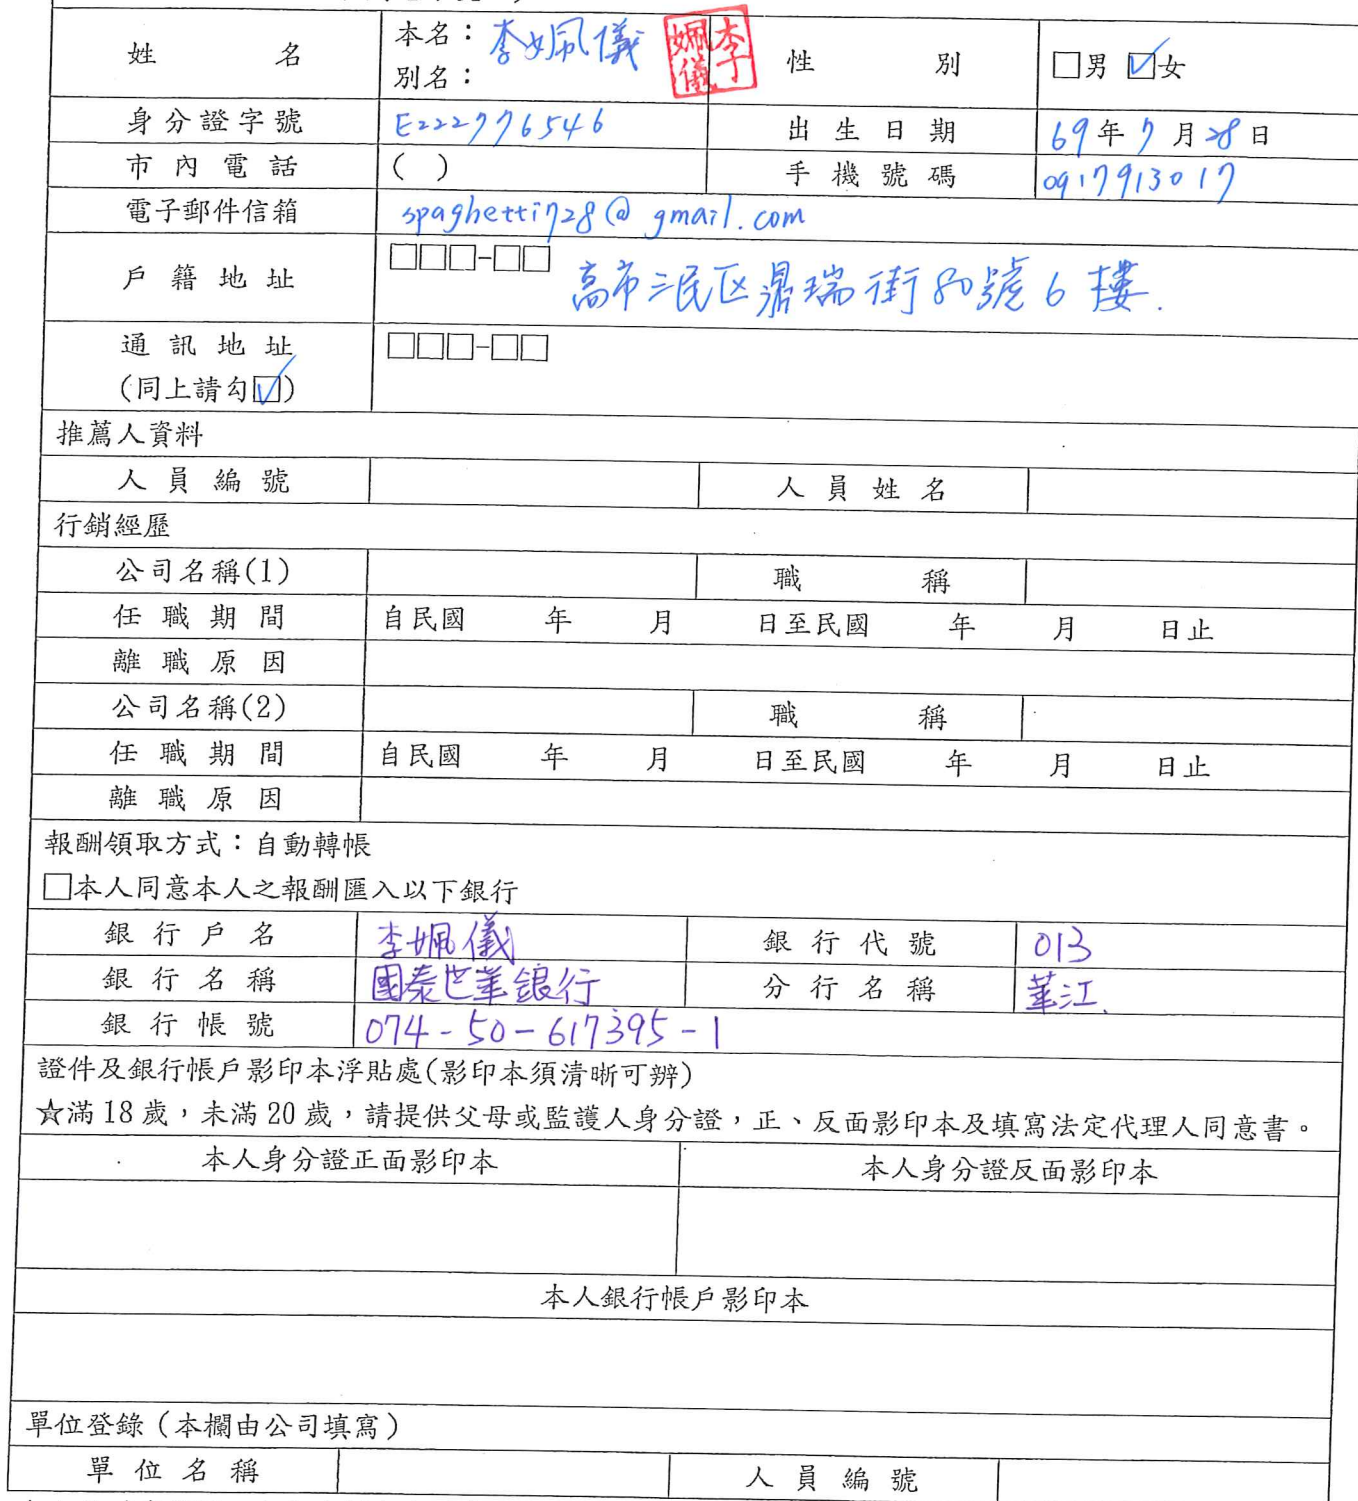 姓名 本名：李姵儀 李姵儀 性別 □男 ☑女
別名：
身分證字號 E222776546 出生日期 69年7月28日
市內電話 ( ) 手機號碼 0917913017
電子郵件信箱 spaghetti728@gmail.com
戶籍地址 □□□-□□ 高市三民区鼎瑞街80號6樓.
通訊地址 □□□-□□
(同上請勾☑)
推薦人資料
人員編號 人員姓名
行銷經歷
公司名稱(1) 職稱
任職期間 自民國 年 月 日至民國 年 月 日止
離職原因
公司名稱(2) 職稱
任職期間 自民國 年 月 日至民國 年 月 日止
離職原因
報酬領取方式：自動轉帳
□本人同意本人之報酬匯入以下銀行
銀行戶名 李姵儀 銀行代號 013
銀行名稱 國泰世華銀行 分行名稱 華江.
銀行帳號 074-50-617395-1
證件及銀行帳戶影印本浮貼處(影印本須清晰可辨)
☆滿18歲，未滿20歲，請提供父母或監護人身分證，正、反面影印本及填寫法定代理人同意書。
本人身分證正面影印本 本人身分證反面影印本
本人銀行帳戶影印本
單位登錄（本欄由公司填寫）
單位名稱 人員編號